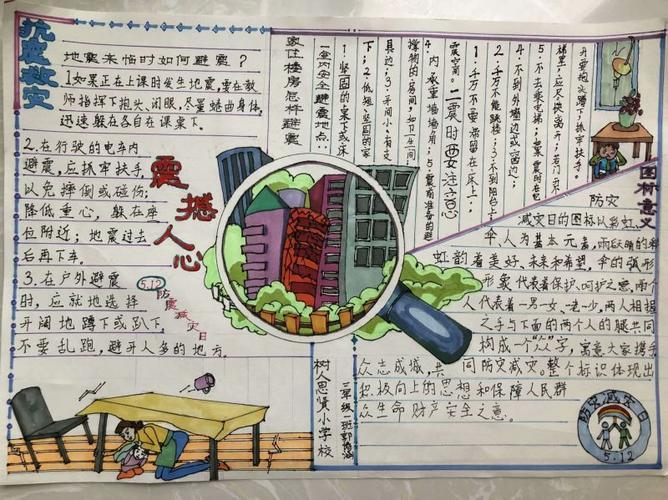 抗震救灾
地震来临时如何避震？
1如果正在上课时发生地震，要在教
师指挥下抱头、闭眼、尽量蜷曲身体，
迅速躲在各自在课桌下。
2.在行驶的电车内
避震，应抓牢扶手，
以免摔倒或碰伤；
降低重心，躲在座
位附近；地震过去
后再下车。
3.在户外避震
时，应就地选择
开阔地蹲下或趴下，
不要乱跑，避开人多的地方。
震撼人心
5.12
防震减灾日
家住楼房怎样避震
一室内安全避震地点：
1.坚固的桌下或床
下；2.低矮坚固的家
具边；3.开间小、有支
撑物的房间，如卫生间
4.内承重墙墙角；5.震前准备的避
震空间。二震时要注意
1.千万不要滞留在床上；
2.千万不能跳楼；3.不到阳台上
4.不到外墙边或窗边；
5.不去乘电梯；如果震时在电
梯里，应尽快离开；若门打不
开要抱头蹲下，抓牢扶手。
图标意义
防灾
减灾日的图标以彩虹、
伞、人为基本元素，雨后天晴的彩
虹韵着美好、未来和希望，伞的弧形
形象代表着保护、呵护之意，两个
人代表着一男一女、一老一少，两人相握
之手与下面的两个人的腿共同
构成一个“众”字，寓意大家携手
众志成城，共同防灾减灾。整个标识体现出
积极向上的思想和保障人民群
众生命财产安全之意。
树人思贤小学校
防灾减灾日
5.12